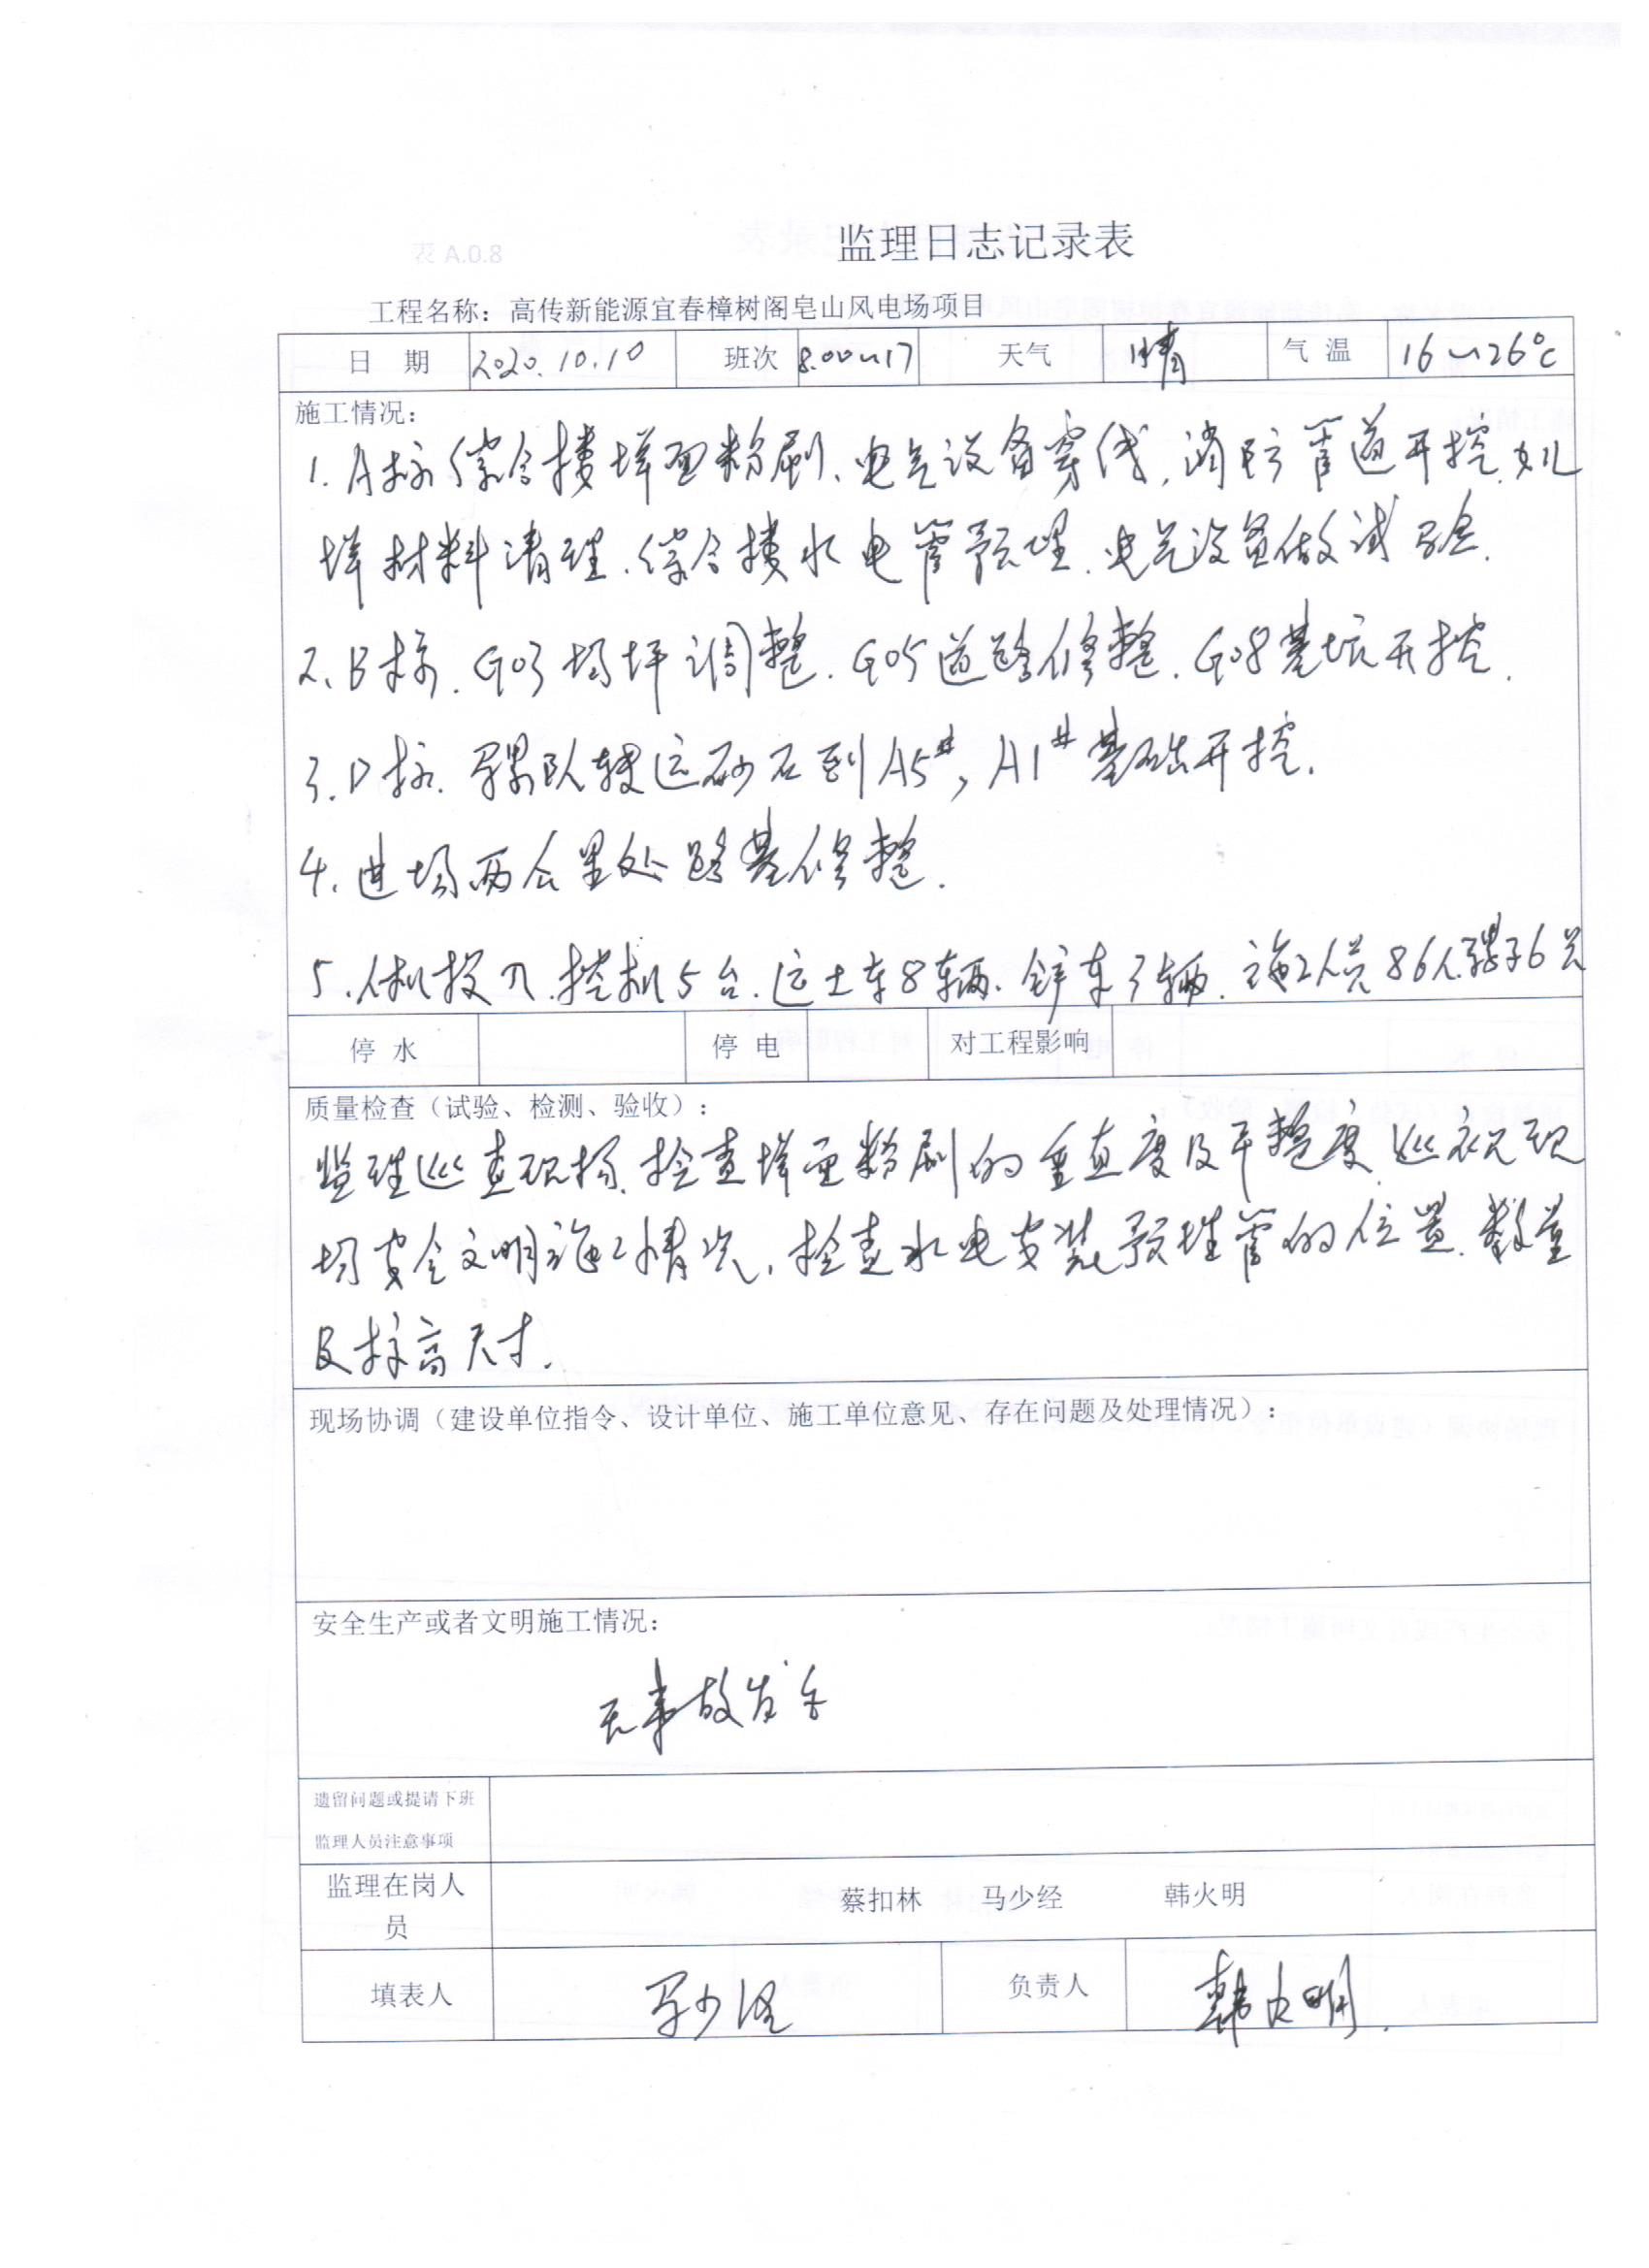 监理日志记录表
工程名称：高传新能源宜春樟树阁皂山风电场项目
日 期 2020.10.10 班次 8.00~17 天气 晴 气 温 16~26℃
施工情况：
1.A标综合楼墙面粉刷、电气设备穿线,消防管道开挖.
墙材料清理.综合楼水电管预埋.电气设备做试验.
2、B标.G03场坪调整.G05道路修整.G08基坑开挖.
3.D标.骡队转运砂石到A5#,A1#基础开挖.
4.进场两公里处路基修整.
5.人机投入.挖机5台.运土车8辆.铲车3辆.施工人员86人骡子6
停 水 停 电 对工程影响
质量检查（试验、检测、验收）：
监理巡查现场.检查墙面粉刷的垂直度及平整度.巡视现
场安全文明施工情况,检查水电安装预埋管的位置.数量
及标高尺寸.
现场协调（建设单位指令、设计单位、施工单位意见、存在问题及处理情况）：
安全生产或者文明施工情况：
无事故发生
遗留问题或提请下班
监理人员注意事项
监理在岗人
员
蔡扣林 马少经 韩火明
填表人 马少经 负责人 韩火明.